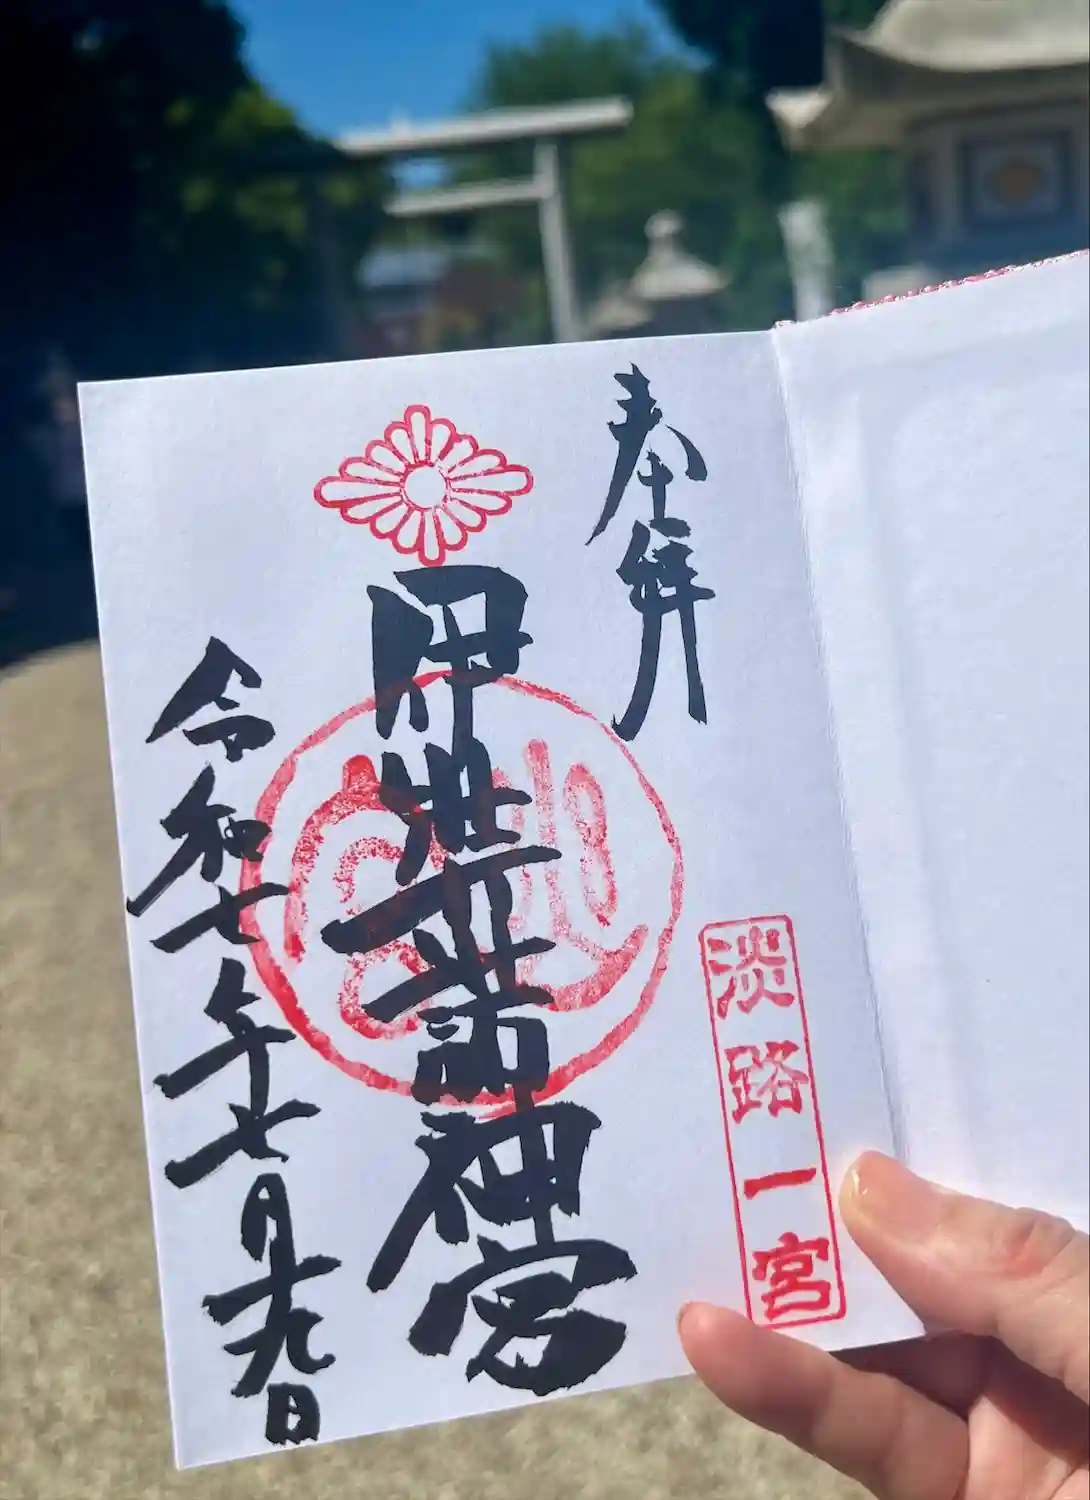 奉拝
淡路一宮
伊弉諾神宮
令和七年七月十九日